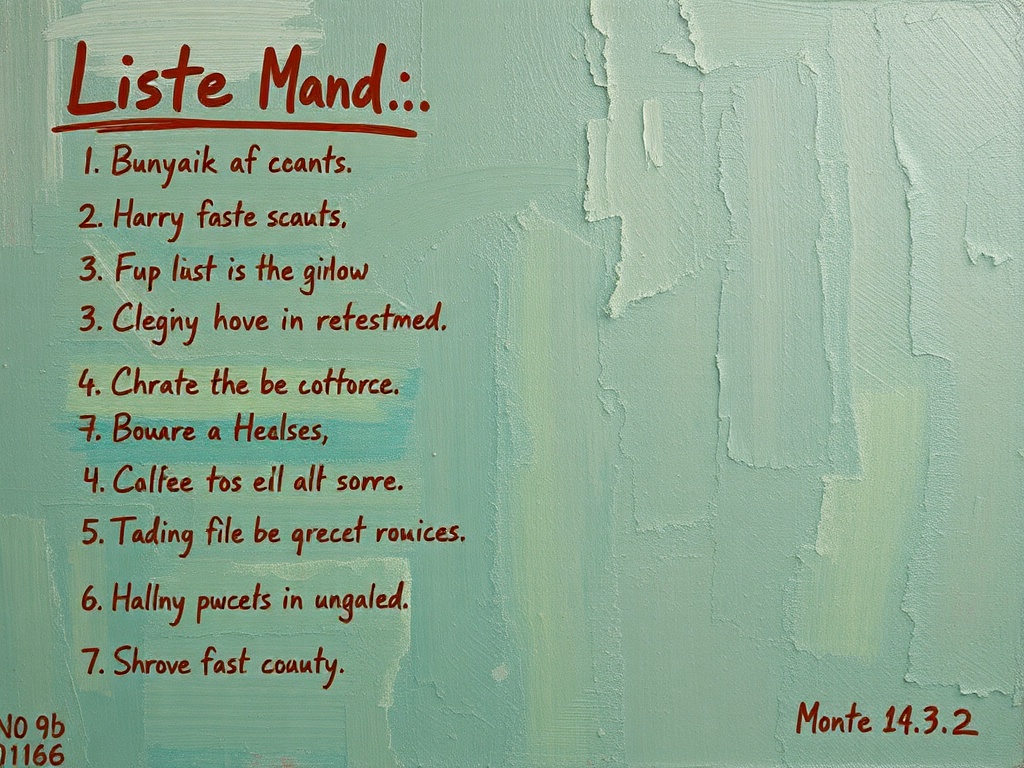 Liste Mand...
1. Bunyaik af ccants.
2. Harry faste scauts,
3. Fup lust is the girlow
3. Clegny hove in refestmed.
4. Chrate the be cotforce.
7. Bouare a Healses,
4. Calfee tos eil alt sorre.
5. Tading file be qrecet rouices.
6. Hallny pwcets in ungaled.
7. Shrove fast couuty.
NO 9b
01166
Monte 14.3.2